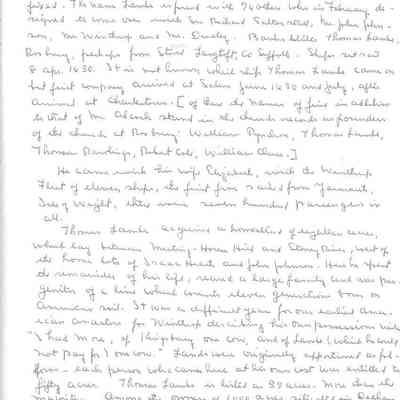 Thomas Lamb is listed with 76 other who in February de-
signed to come over with Sir Richard Saltonstall, Mr. John John-
son, Mr Winthrop and Mr. Dudley. Banks Thomas Lambe,
Roxbury, perhaps from Stowe Langtoft, Co Suffolk. Ships set sail
8 apr. 1630. It is not known which ship Thomas Lambe came on
but first company arrived at Salem June 1630 and July, after
arrived at Charlestown. [ of the names of five in addition
to that of Mr. Alcock stand in the church records as founders
of the church at Roxbury: William Pynchon, Thomas Lambe,
Thomas Rawlings, Robert Cole, William Chase.]
He came with his wife Elizabeth, with the Winthrop
Fleet of eleven ships, the first five sailed from Yarmouth,
Isle of Wight, there were seven hundred passengers in
all.
Thomas Lambe acquired a homestead of eighteen acres,
which lay between Meeting-House Hill and Stoney River, west of
the home lots of Isaac Heath and John Johnson. Here he spent
the remainder of his life, reared a large family and was pro-
genitor of a line which counts eleven generations born on
American soil. It was a difficult year for our earliest Amer-
ican ancestors for Winthrop describing his own possessions writes
"I had more, of Kingsbury one cow, and of Lambe (which he will
not pay for) one cow." Lands were originally apportioned as fol-
lows - each person who came here at his own cost was entitled to
fifty acres. Thomas Lambe is listed as 33 acres. More than the
majority. Among the owners of 1000 acres in Dedham